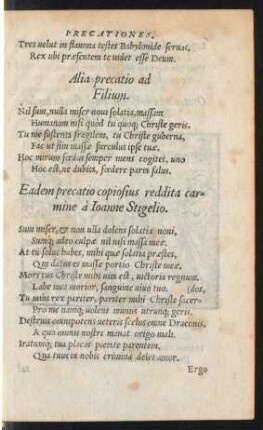 PRECATIONES.
Tres uelut in flamma testes Babylonide seruas,
Rex ubi præsentem te uidet esse Deum.
Alia precatio ad
Filium.
Nil sum, nulla miser noui solatia, massam
Humanam nisi quòd tu quoq; Christe geris.
Tu me sustenta fragilem, tu Christe guberna,
Fac ut sim massæ surculus ipse tuæ.
Hoc mirum fœdus semper mens cogitet, uno
Hoc est, ne dubita, fœdere parta salus.
Eadem precatio copiosius reddita car-
mine à Ioanne Stigelio.
Sum miser, & non ulla dolens solatia noui,
Sumq; adeo culpæ nil nisi massa meæ.
At tu solus habes, mihi quæ solatia præstes,
Qui datus es massæ portio Christe meæ.
Mors tua Christe mihi uita est, uictoria regnum,
Labe mea morior, sanguine uiuo tuo. (dos,
Tu mihi rex pariter, pariter mihi Christe sacer-
Pro me namq; uolens munus utrunq; geris.
Destruis omnipotens ueteris scelus omne Draconis,
A quo omnis nostri manat origo mali.
Iratumq; tua placas pietate parentem,
Qua tuus in nobis crimina delet amor.
Ergo